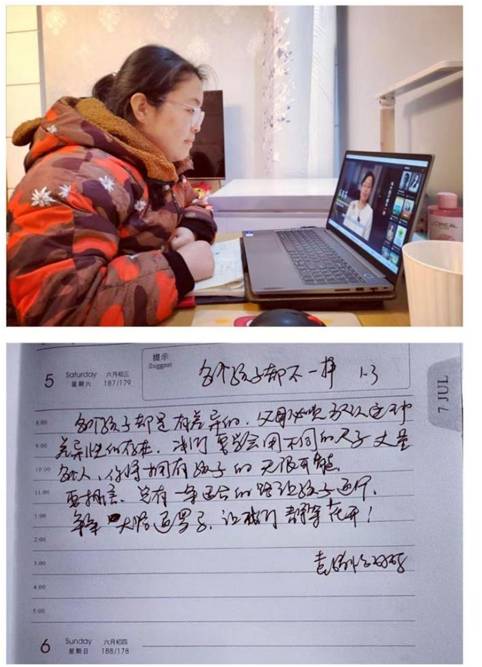 5 Saturday 六月初三
星期六 187/179
提示
Suggest
每个孩子都不一样 1.3
7 JUL
8:00 每个孩子都是有差异的，父母必须承认这种
9:00 差异性的存在，我们要学会用不同的尺子丈量
10:00 别人，你将拥有孩子的无限可能。
11:00 要相信，总有一条适合的路让孩子通行。
1:00 大路，让我们静等花开！
2:00
3:00
4:00
5:00
6 Sunday 六月初四
星期日 188/178